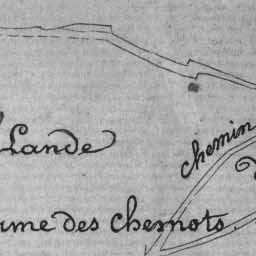 Lande
chemin
des chemots